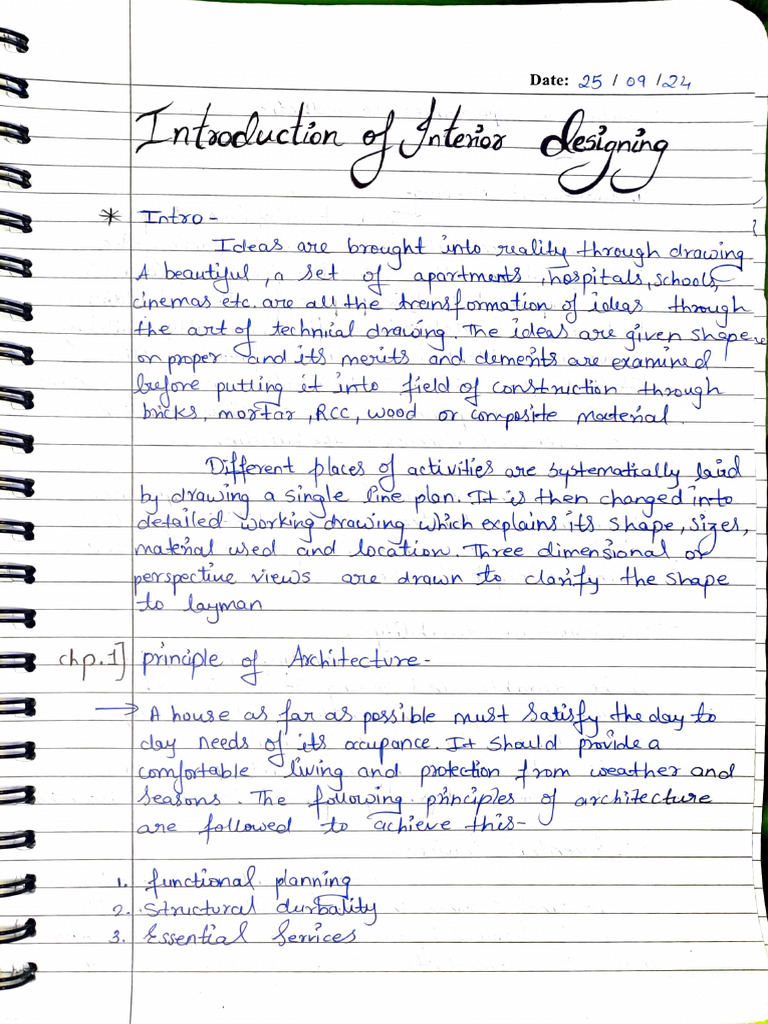 Date: 25 / 09 / 24
Introduction of Interior designing
* Intro -
Ideas are brought into reality through drawing
A beautiful, a set of apartments, hospitals, schools,
cinemas etc. are all the transformation of ideas through
the art of technical drawing. The ideas are given shape
on proper and its merits and demerits are examined
before putting it into field of construction through
bricks, mortar, RCC, wood or composite material.
Different places of activities are systematically laid
by drawing a single line plan. It is then changed into
detailed working drawing which explains its shape, sizes,
material used and location. Three dimensional or
perspective views are drawn to clarify the shape
to layman
chp. 1] principle of Architecture-
→ A house as far as possible must satisfy the day to
day needs of its occupance. It should provide a
comfortable living and protection from weather and
seasons. The following principles of architecture
are followed to achieve this-
1. functional planning
2. Structural durbality
3. Essential Services